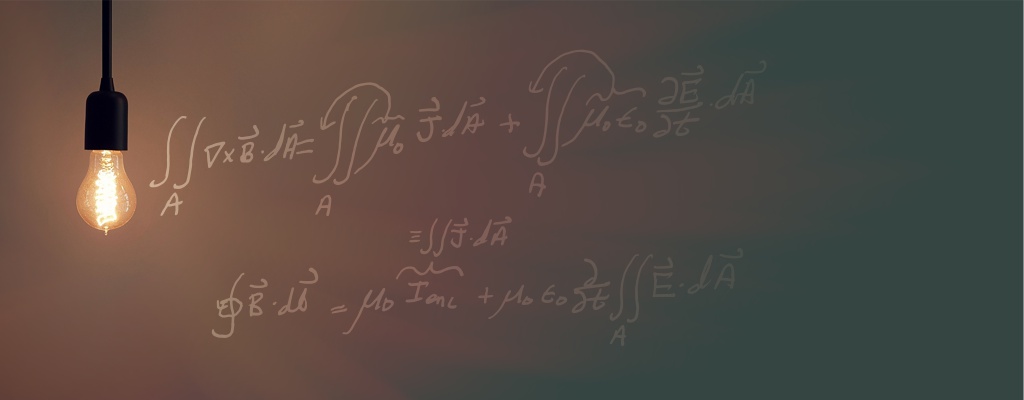 ∬_A ∇×B⃗·dA⃗ = ∬_A μ₀ J⃗·dA⃗ + ∬_A μ₀ε₀ ∂E⃗/∂t · dA⃗
≡∬J⃗·dA⃗
∮B⃗·dl⃗ = μ₀ I_enc + μ₀ ε₀ ∂/∂t ∬_A E⃗·dA⃗